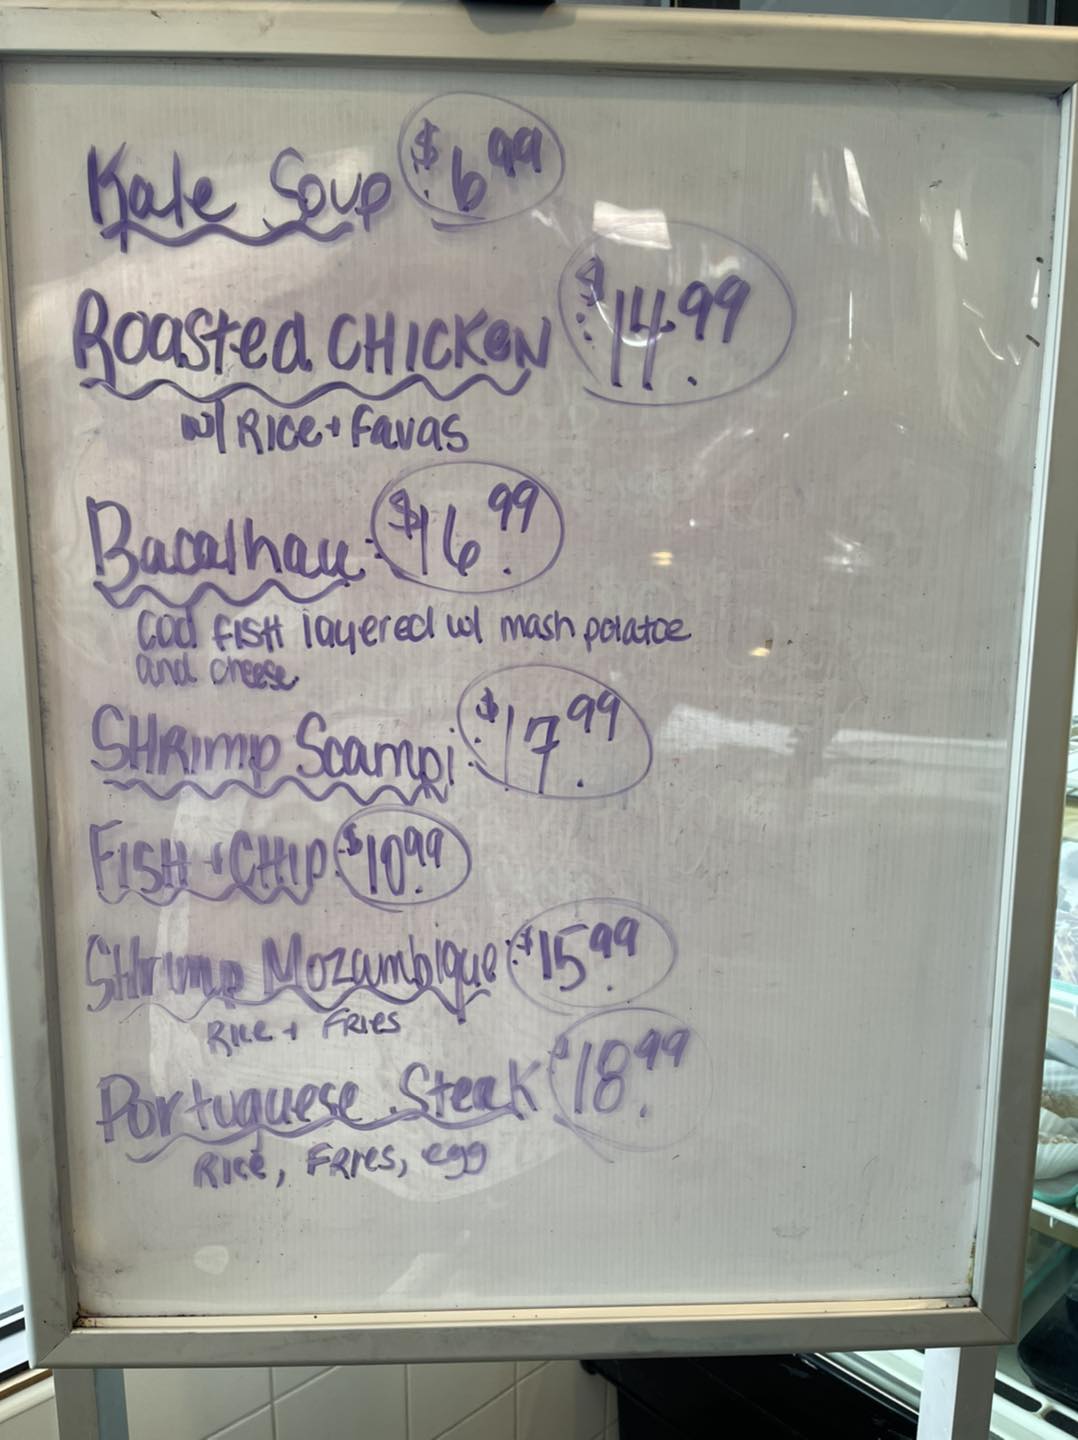 Kale Soup $6.99
Roasted CHICKEN $14.99
w/ Rice + Favas
Bacalhau: $16.99
Cod FISH layered w/ mash potatoe
and cheese
SHRimp Scampi: $17.99
FISH + CHIP $10.99
SHrimp Mozambique: $15.99
Rice + FRIES
Portuguese Steak $18.99
Rice, FRIES, egg